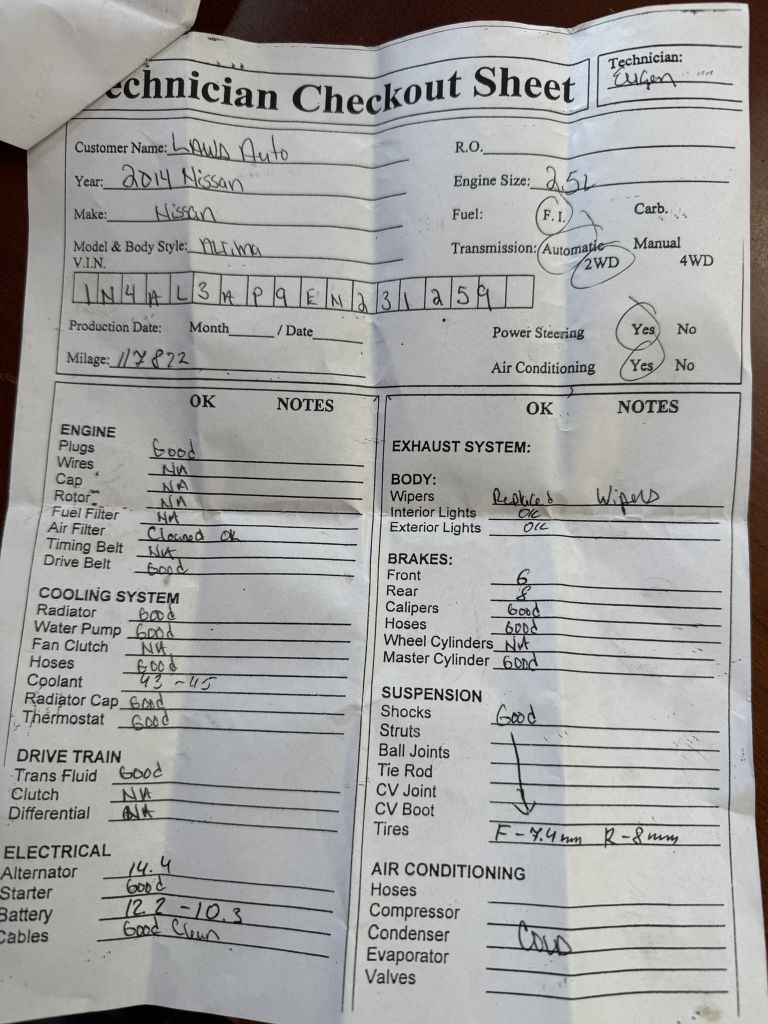 echnician Checkout Sheet
Technician:
Eugen
Customer Name: LAWD Auto
R.O.
Year: 2014 Nissan
Engine Size: 2.5L
Make: Nissan
Fuel: F.I. Carb.
Model & Body Style: Altima
Transmission: Automatic Manual
2WD 4WD
V.I.N.
1N4AL3AP9EN231259
Production Date: Month / Date
Power Steering Yes No
Milage: 117822
Air Conditioning Yes No
OK NOTES
ENGINE
Plugs Good
Wires NA
Cap NA
Rotor NA
Fuel Filter NA
Air Filter Cleaned OK
Timing Belt NA
Drive Belt Good
COOLING SYSTEM
Radiator Good
Water Pump Good
Fan Clutch NA
Hoses Good
Coolant 43 - 45
Radiator Cap Good
Thermostat Good
DRIVE TRAIN
Trans Fluid Good
Clutch NA
Differential NA
ELECTRICAL
Alternator 14.4
Starter Good
Battery 12.2 - 10.3
Cables Good Clean
OK NOTES
EXHAUST SYSTEM:
BODY:
Wipers Replaced Wipers
Interior Lights OK
Exterior Lights OK
BRAKES:
Front 6
Rear 8
Calipers Good
Hoses Good
Wheel Cylinders NA
Master Cylinder Good
SUSPENSION
Shocks Good
Struts
Ball Joints
Tie Rod
CV Joint
CV Boot
Tires F-7.4mm R-8mm
AIR CONDITIONING
Hoses
Compressor
Condenser Cold
Evaporator
Valves